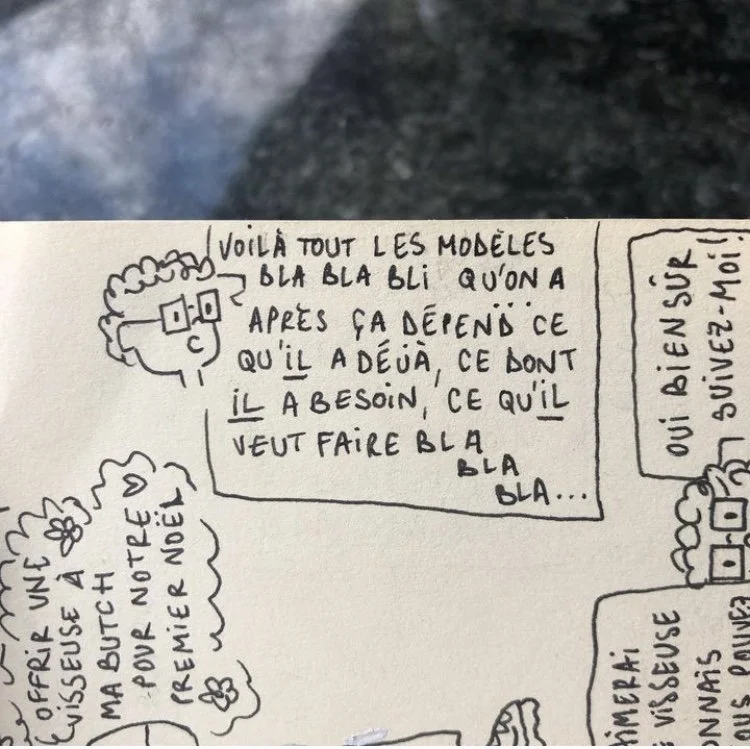 VOILÀ TOUT LES MODÈLES
BLA BLA BLI QU'ON A ...
APRÈS ÇA DÉPEND CE
QU'IL A DÉJÀ, CE DONT
IL A BESOIN, CE QU'IL
VEUT FAIRE BLA
BLA
BLA...
OUI BIEN SÛR
SUIVEZ-MOI!
OFFRIR UNE
VISSEUSE À
MA BUTCH
POUR NOTRE ♡
PREMIER NOËL
VISSEUSE
POUVEZ